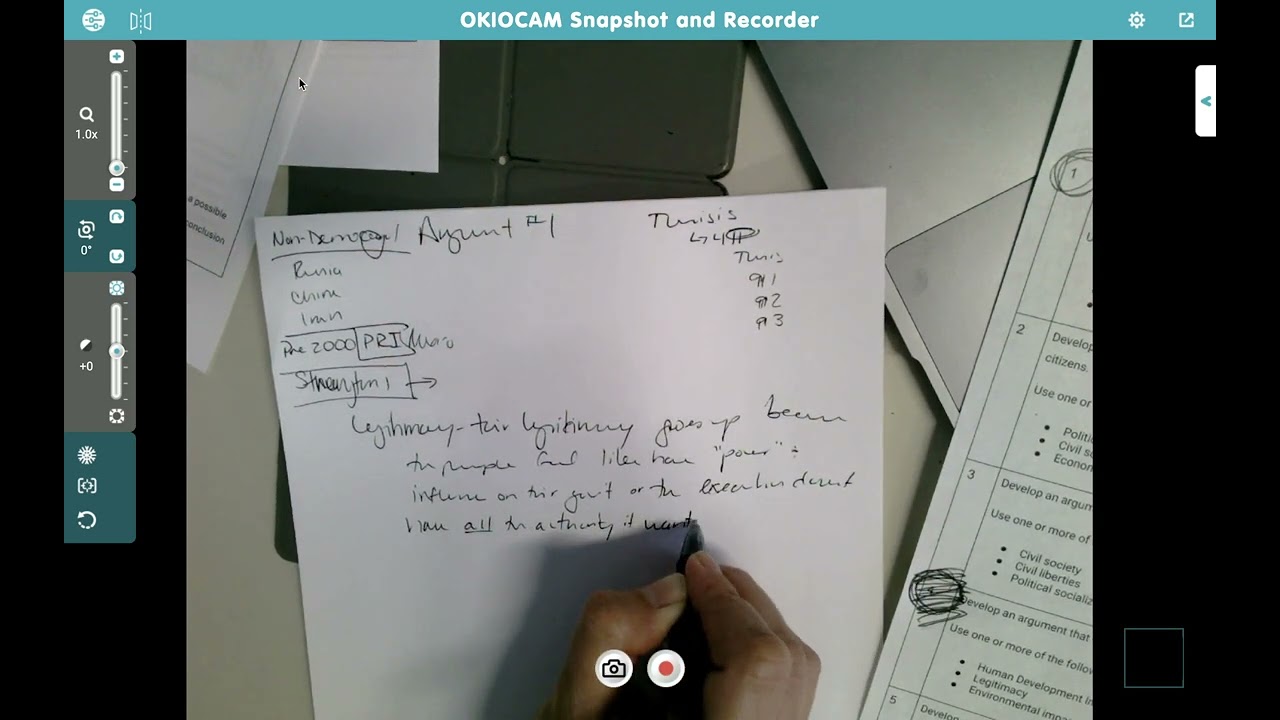 OKIOCAM Snapshot and Recorder
1.0x
0°
+0
a possible
conclusion
Argument #1
Thesis
↳ 4
Thesis
¶1
¶2
¶3
Russia
China
Iran
Pre 2000 PRI Mexico
Legitimacy - their legitimacy goes up because
the people feel like have "power" +
influence on their gov't or the executive doesn't
have all the authority it wants
1
2
Develop
citizens.
Use one or
• Politi
• Civil so
• Econom
3
Develop an argum
Use one or more of
• Civil society
• Civil liberties
• Political socializ
Develop an argument that
Use one or more of the follow
• Human Development In
• Legitimacy
• Environmental impa
5
Develop